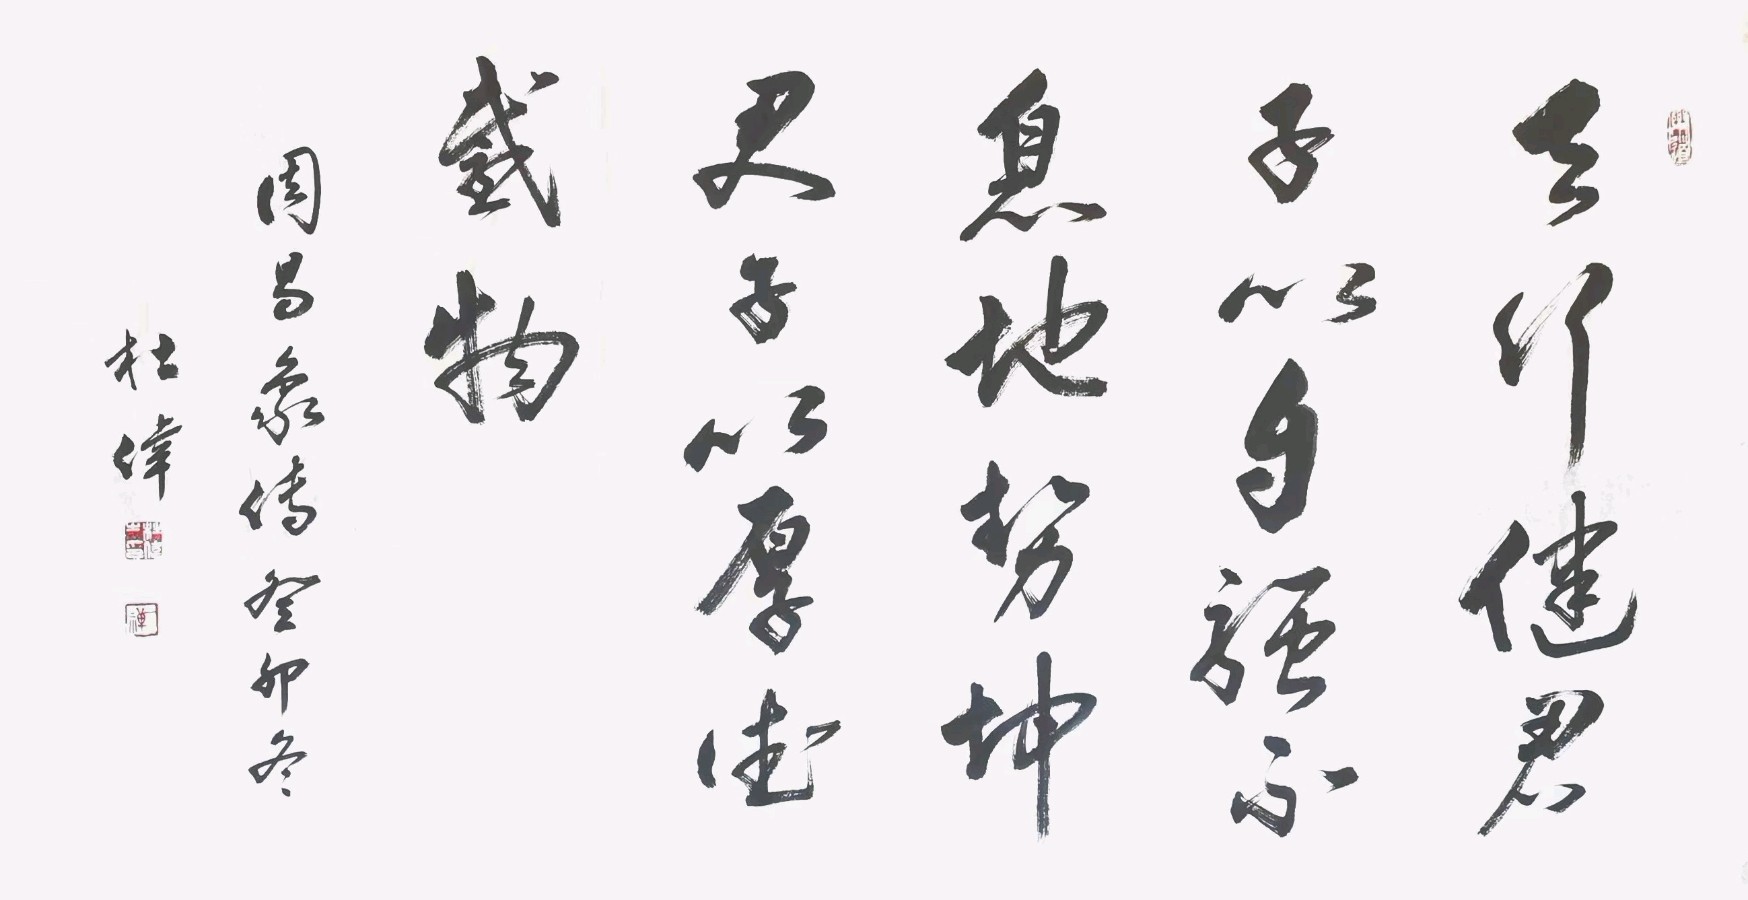 天行健君
子以自强不
息地势坤
君子以厚德
载物
周易象传癸卯冬
杜伟